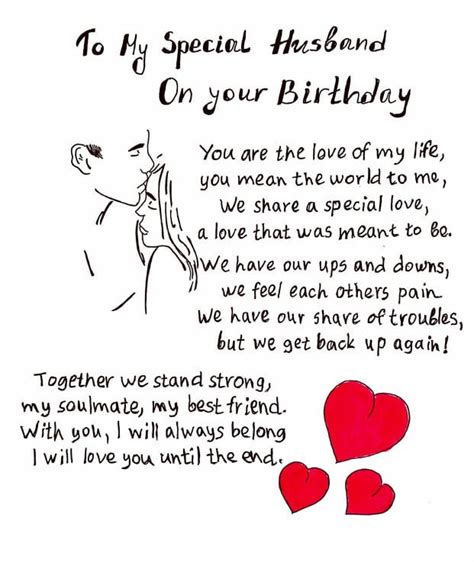 To My Special Husband
On your Birthday
You are the love of my life,
you mean the world to me,
We share a special love,
a love that was meant to be.
We have our ups and downs,
we feel each others pain
We have our share of troubles,
but we get back up again!
Together we stand strong,
my soulmate, my best friend.
With you, I will always belong
I will love you until the end.